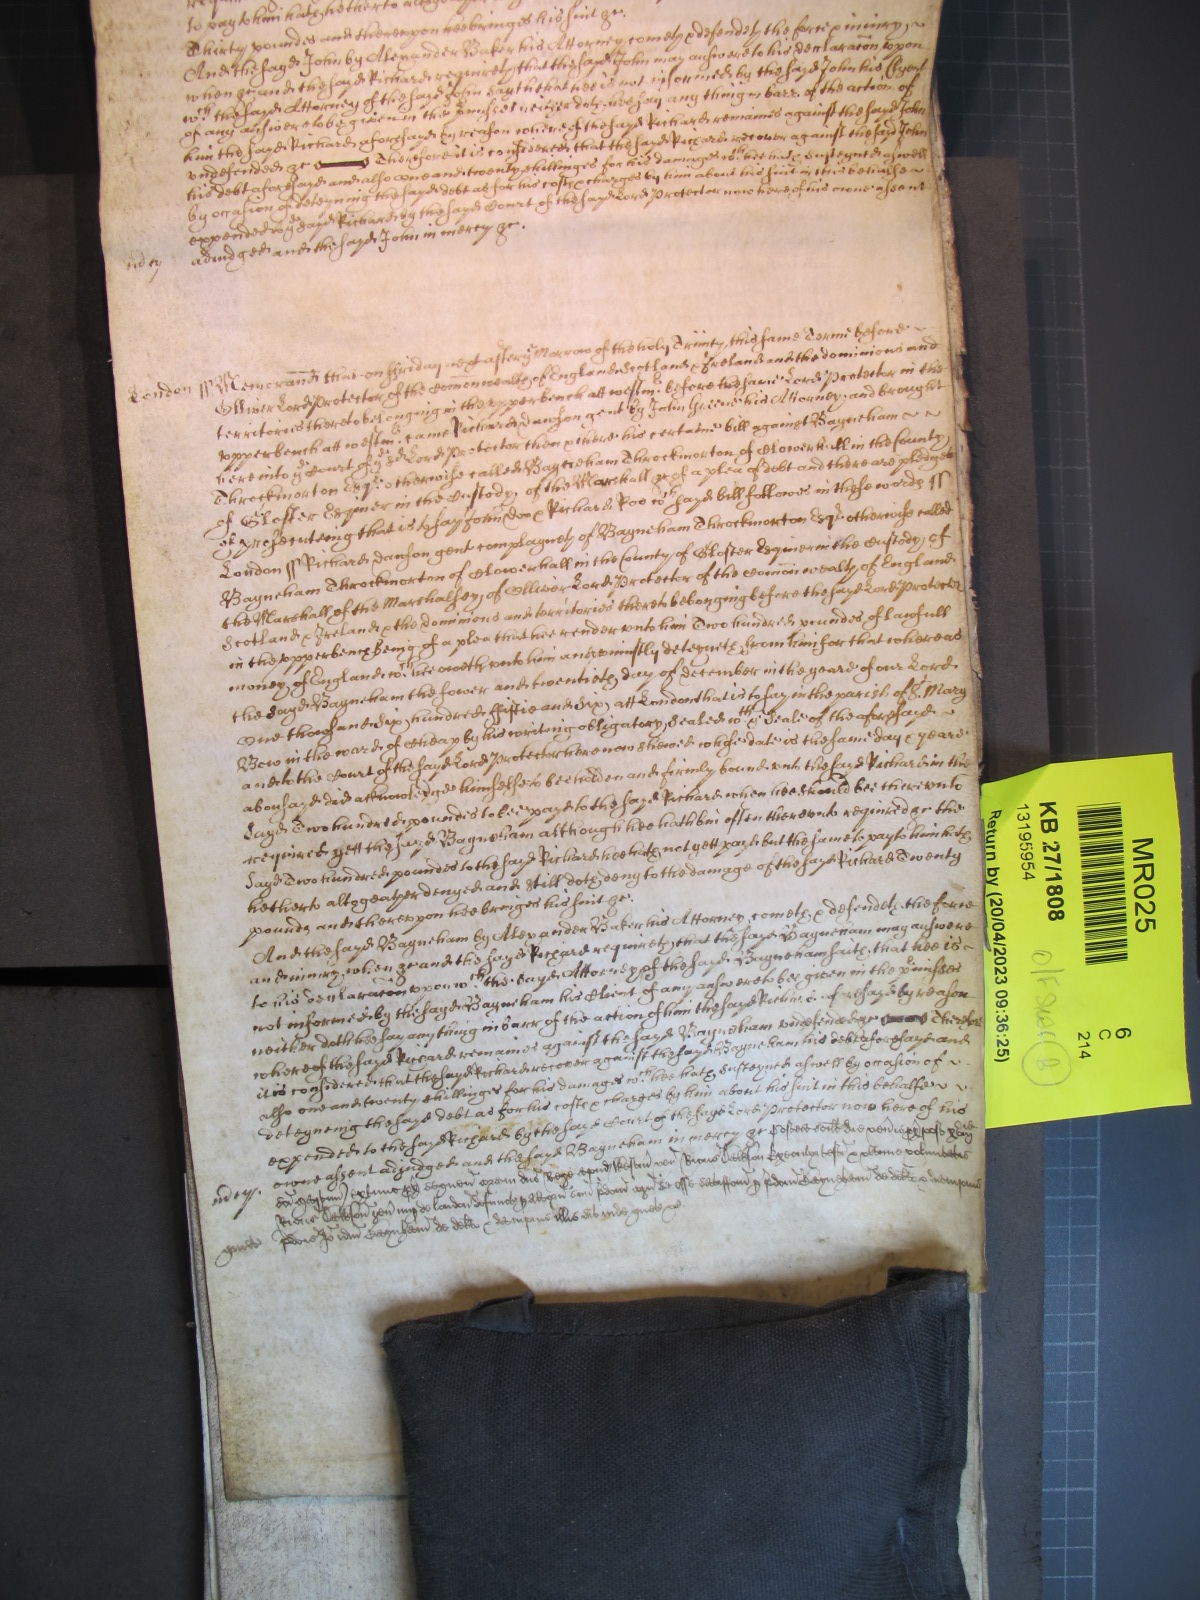 to pay to him hath hitherto altogeather
Thirty poundes and thereupon hee bringes his suit &c.
And the sayd John by Alexander Baker his Attorney cometh & defendeth the force & iniury
when &c and the sayd Richard requireth that the sayd John may answere to his declaration upon
wch the sayd Attorney of the sayd John sayth that hee is not informed by the sayd John his Clyent
of any answere to bee given in the premisses neither doth hee say any thing in barr of the action of
him the sayd Richard aforesayd by reason whereof the sayd Richard remaines against the sayd John
undefended &c Therefore it is considered that the sayd Richard recover against the sayd John
his debt aforesayd and also one and twenty shillinges for his damages wch hee hath susteyned aswell
by occasion of deteyning the sayd debt as for his costes & charges by him about his suit in this behalfe
expended to ye sayd Richard by the sayd Court of the sayd Lord Protector now here of his owne assent
adiudged and the sayd John in mercy &c.
London ss Memorand that on Fryday next after ye Morrow of the holy Trinity this same Terme before
Olliver Lord Protector of the Comonwealth of England Scotland & Ireland and the dominions and
territories thereto belonging in the upper bench att westmr before the same Lord Protector in the
upper bench att westmr came Richard Danson gent by John Greene his Attorney and brought
here into ye Court of ye sd Lord Protector then & there his certaine bill against Bayneham
Throckmorton Esqr otherwise called Bayneham Throckmorton of Clowerwall in the County
of Gloster Esquier in the Custody of the Marshall &c of a plea of debt and there are pledges
of prosecuteing that is to say John Doo & Richard Roo wch sayd bill followes in these words ss
London ss Richard Danson gent complayneth of Bayneham Throckmorton Esqr otherwise called
Bayneham Throckmorton of Clowerwall in the County of Gloster Esquier in the Custody of
the Marshall of the Marshalsey of Olliver Lord Protector of the Comonwealth of England
Scotland & Ireland & the dominions and territories thereto belonging before the sayd Lord Protector
in the upper bench being of a plea that hee render unto him Two hundred poundes of lawfull
money of England wch hee oweth unto him and uniustly deteyneth from him for that whereas
the sayd Bayneham the fower and twentieth day of december in the yeare of our Lord
One thousand six hundred Fiftie and Six att London that is to say in the parish of St Mary
Bow in the ward of Cheap by his writing obligatory Sealed wth ye Seale of the aforesayd
and to the Court of the sayd Lord Protector here now shewed whose date is the same day & yeare
abovesayd did acknowledge himselfe to bee holden and firmly bound unto the sayd Richard in the
sayd Two hundred poundes to bee payd to the sayd Richard when hee should bee thereunto
required yett the sayd Bayneham although hee hath bin often thereunto required &c the
sayd Two hundred poundes to the sayd Richard hee hath not yett payd but the same to pay to him hath
hetherto altogeather denyed and still doth deny to the damage of the sayd Richard Twenty
poundes and thereupon hee bringes his suit &c.
And the sayd Bayneham by Alexander Baker his Attorney cometh & defendeth the force
and iniury when &c and the sayd Richard requireth that the sayd Bayneham may answere
to his declaration upon wch the sayd Attorney of the sayd Bayneham saith that hee is
not informed by the sayd Bayneham his Client of any answere to bee given in the premisses
neither doth hee say any thing in barr of the action of him the sayd Richard aforesayd by reason
whereof the sayd Richard remaines against the sayd Bayneham undefended &c Therefore
it is considered that the sayd Richard recover against the sayd Bayneham his debt aforesayd and
also one and twenty shillinges for his damages wch hee hath susteyned aswell by occasion of
deteyneing the sayd debt as for his costes & charges by him about his suit in this behalfe
expended to the sayd Richard by the sayd Court of the sayd Lord Protector now here of his
owne assent adiudged and the sayd Bayneham in mercy &c
MR025
6
C
214
KB 27/1808
13195954
Return by (20/04/2023 09:36:25)